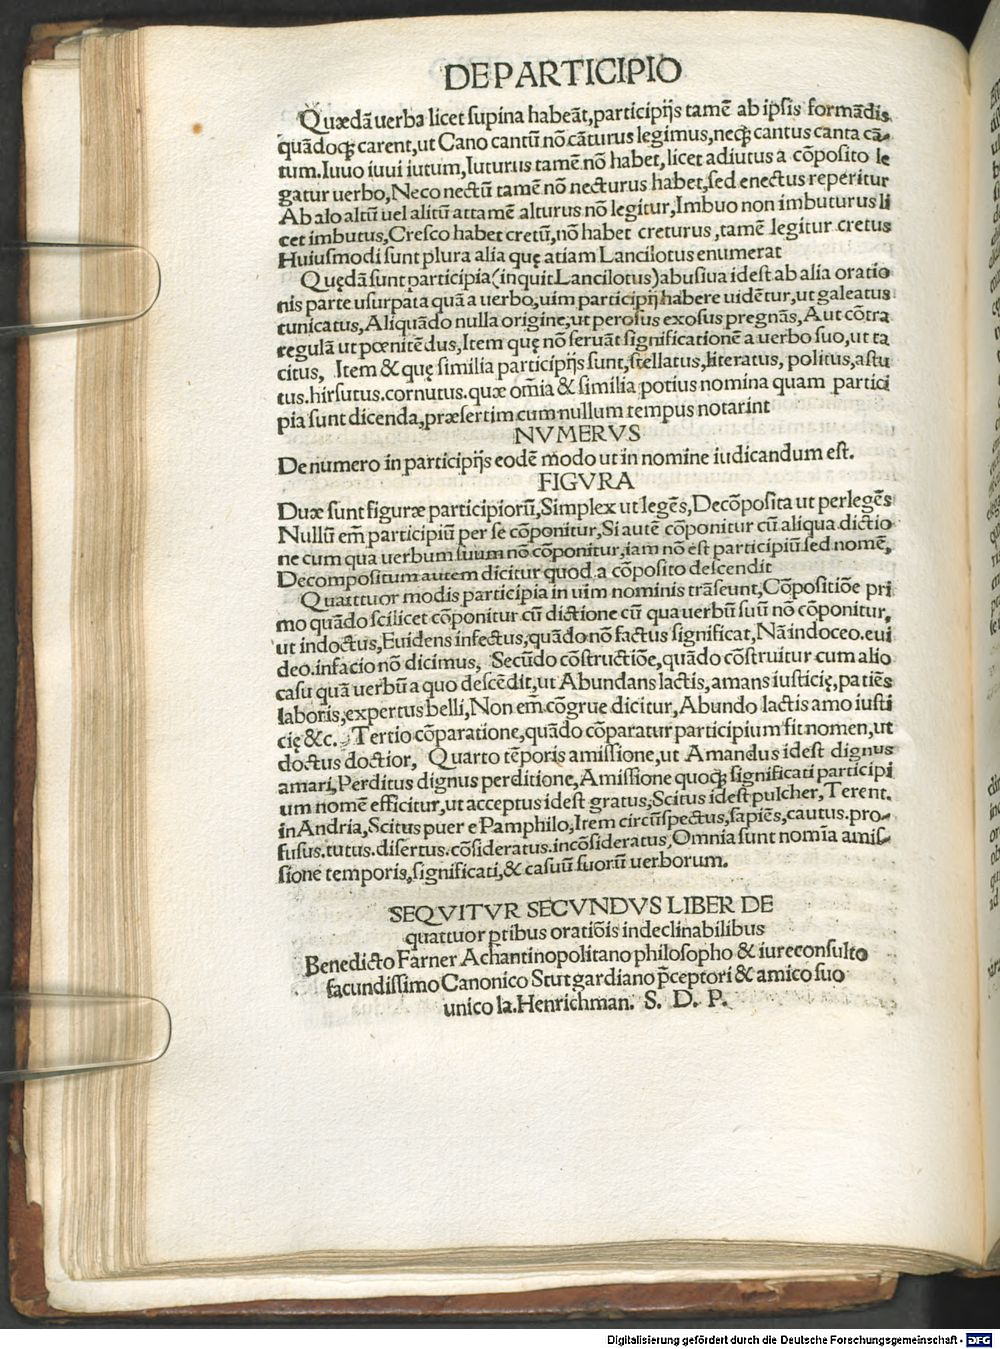 DE PARTICIPIO
Quædã uerba licet supina habeãt, participijs tamẽ ab ipsis formãdis
quãdoqꝫ carent, ut Cano cantũ nõ cãturus legimus, neqꝫ cantus canta cã-
tum. Iuuo iuui iutum, Iuturus tamẽ nõ habet, licet adiutus a cõposito le
gatur uerbo, Neco nectũ tamẽ nõ necturus habet, sed enectus reperitur
Ab alo altũ uel alitũ attamẽ alturus nõ legitur, Imbuo non imbuturus li
cet imbutus, Cresco habet cretũ, nõ habet creturus, tamẽ legitur cretus
Huiusmodi sunt plura alia quę atiam Lancilotus enumerat
Quędã sunt participia (inquit Lancilotus) abusiua id est ab alia oratio
nis parte usurpata quã a uerbo, uim participij habere uidẽtur, ut galeatus
tunicatus, Aliquãdo nulla origine, ut perosus exosus pregnãs, Aut cõtra
regulã ut pœnitẽdus, Item quę nõ seruãt significationẽ a uerbo suo, ut ta
citus, Item & quę similia participijs sunt, stellatus, literatus, politus, astu
tus. hirsutus. cornutus. quæ om̃ia & similia potius nomina quam partici
pia sunt dicenda, præsertim cum nullum tempus notarint
NVMERVS
De numero in participijs eodẽ modo ut in nomine iudicandum est.
FIGVRA
Duæ sunt figuræ participiorũ, Simplex ut legẽs, Decõposita ut perlegẽs
Nullũ em̃ participiũ per se cõponitur, Si autẽ cõponitur cũ aliqua dictio
ne cum qua uerbum suum nõ cõponitur, iam nõ est participiũ sed nomẽ,
Decompositum autem dicitur quod a cõposito descendit
Quattuor modis participia in uim nominis trãseunt, Cõpositiõe pri
mo quãdo scilicet cõponitur cũ dictione cũ qua uerbũ suũ nõ cõponitur,
ut indoctus, Euidens infectus, quãdo nõ factus significat, Nã indoceo. eui
deo. infacio nõ dicimus, Secũdo cõstructiõe, quãdo cõstruitur cum alio
casu quã uerbũ a quo descẽdit, ut Abundans lactis, amans iusticię, patiẽs
laboris, expertus belli, Non em̃ cõgrue dicitur, Abundo lactis amo iusti
cię &c. Tertio cõparatione, quãdo cõparatur participium fit nomen, ut
doctus doctior, Quarto tẽporis amissione, ut Amandus id est dignus
amari, Perditus dignus perditione, Amissione quoqꝫ significati participi
um nomẽ efficitur, ut acceptus id est gratus, Scitus id est pulcher, Terent.
in Andria, Scitus puer e Pamphilo, Item circũspectus, sapiẽs, cautus. pro-
fusus. tutus. disertus. cõsideratus. incõsideratus, Omnia sunt nom̃ia amis-
sione temporis, significati, & casuũ suorũ uerborum.
SEQVITVR SECVNDVS LIBER DE
quattuor ptibus oratiõis indeclinabilibus
Benedicto Farner Achantinopolitano philosopho & iureconsulto
facundissimo Canonico Stutgardiano p̃ceptori & amico suo
unico Ia. Henrichman. S. D. P.
Digitalisierung gefördert durch die Deutsche Forschungsgemeinschaft - DFG